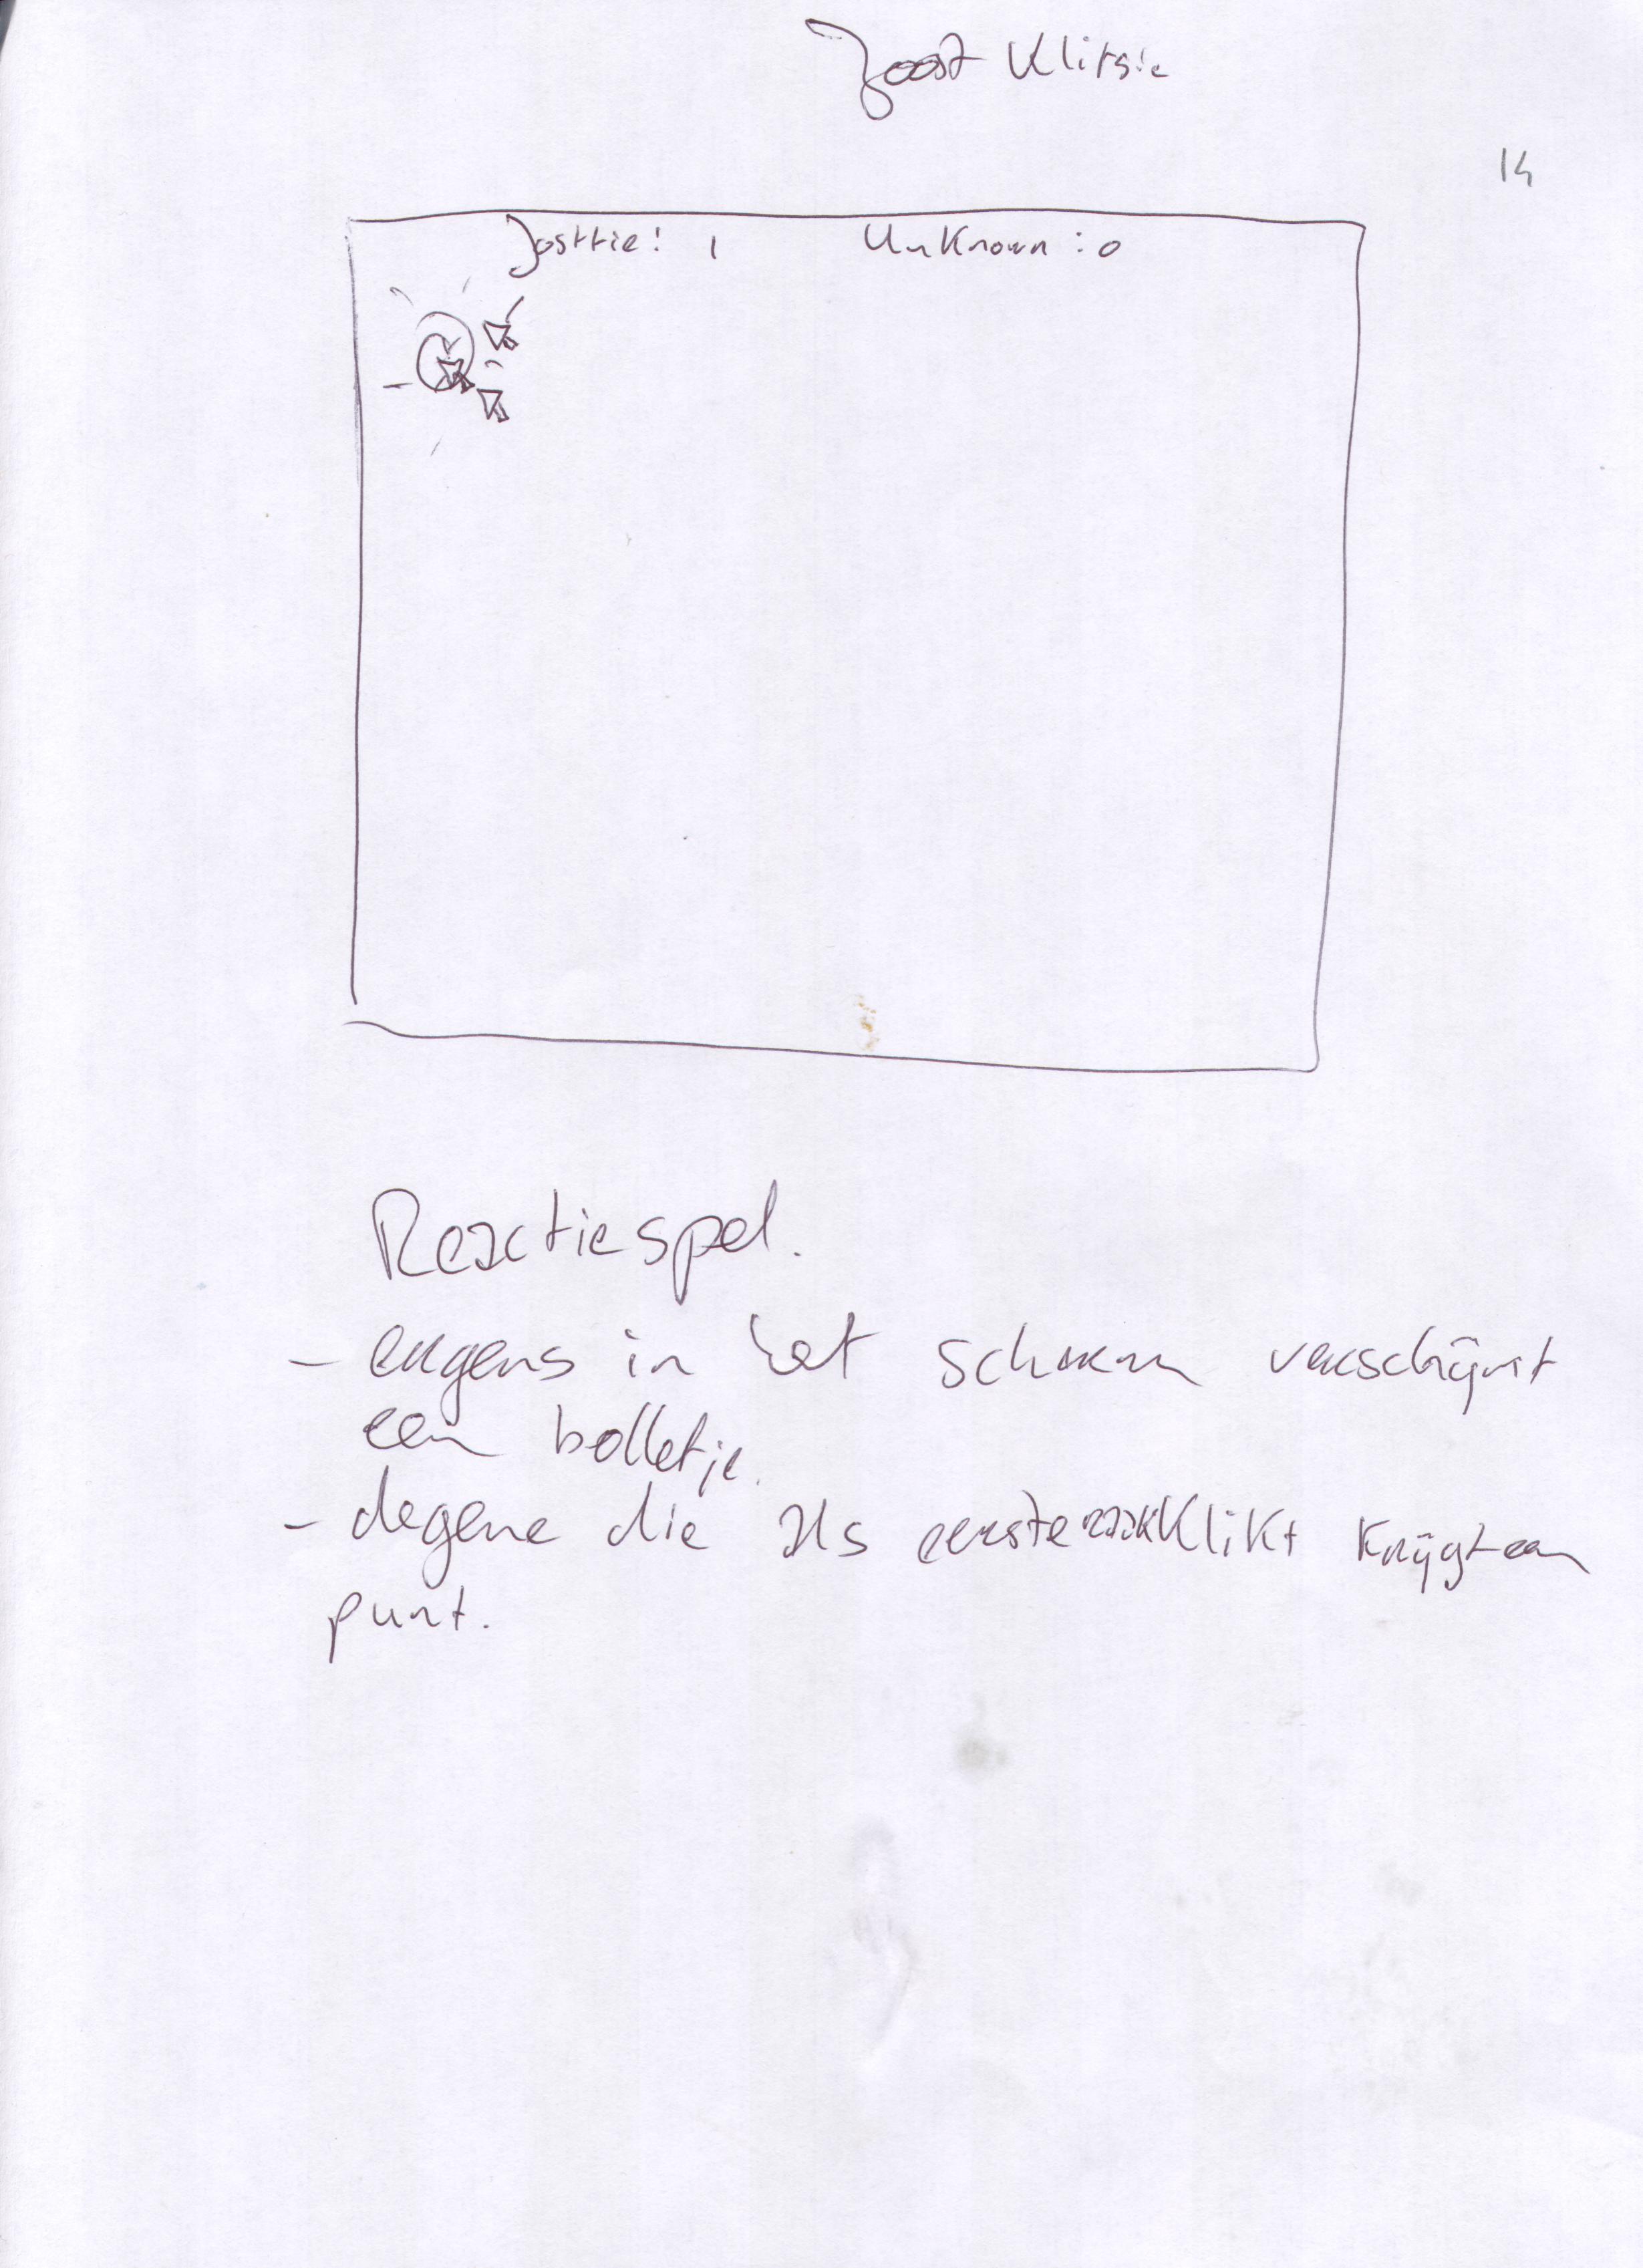 Joost Klitsie
14
Josttie: 1 Unknown: 0
Reactiespel.
- ergens in het scherm verschijnt
een bolletje.
- degene die als eerste raak klikt krijgt een
punt.